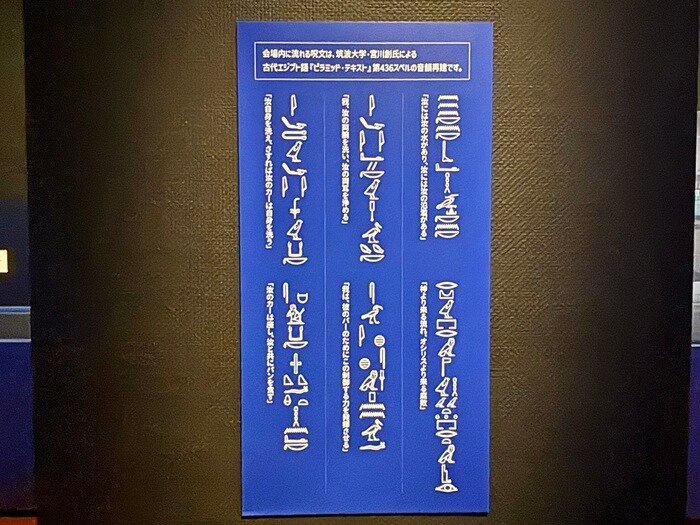 会場内に流れる呪文は、筑波大学・宮川創氏による
古代エジプト語『ピラミッド・テキスト』第436スペルの音韻再建です。
「汝には汝の水があり、汝には汝の氾濫がある」
「神より来る流れ、オシリスより来る腐敗」
「我、汝の両腕を洗い、汝の両耳を浄める」
「我は、彼のバーのためにこの制御する力を発揮させる」
「汝自身を洗え、さすれば汝のカーは自身を洗う」
「汝のカーは座し、汝と共にパンを食す」